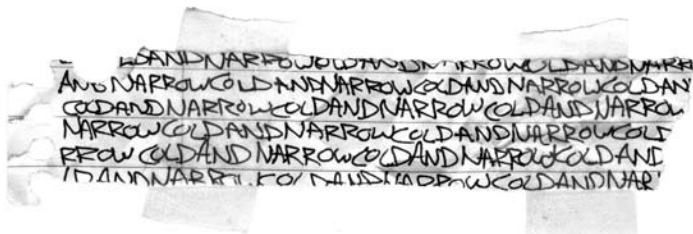 LDANDNARROWOLDANDNARROWCOLDANDNARR
AND NARROWCOLDANDNARROWCOLDANDNARROWCOLDAN
COLDANDNARROWCOLDANDNARROWCOLDANDNARROW
NARROWCOLDANDNARROWCOLDANDNARROWCOLD
RROW COLDAND NARROWCOLDANDNARROWCOLDAND
LDANDNARROWCOLDANDNARROWCOLDANDNAR